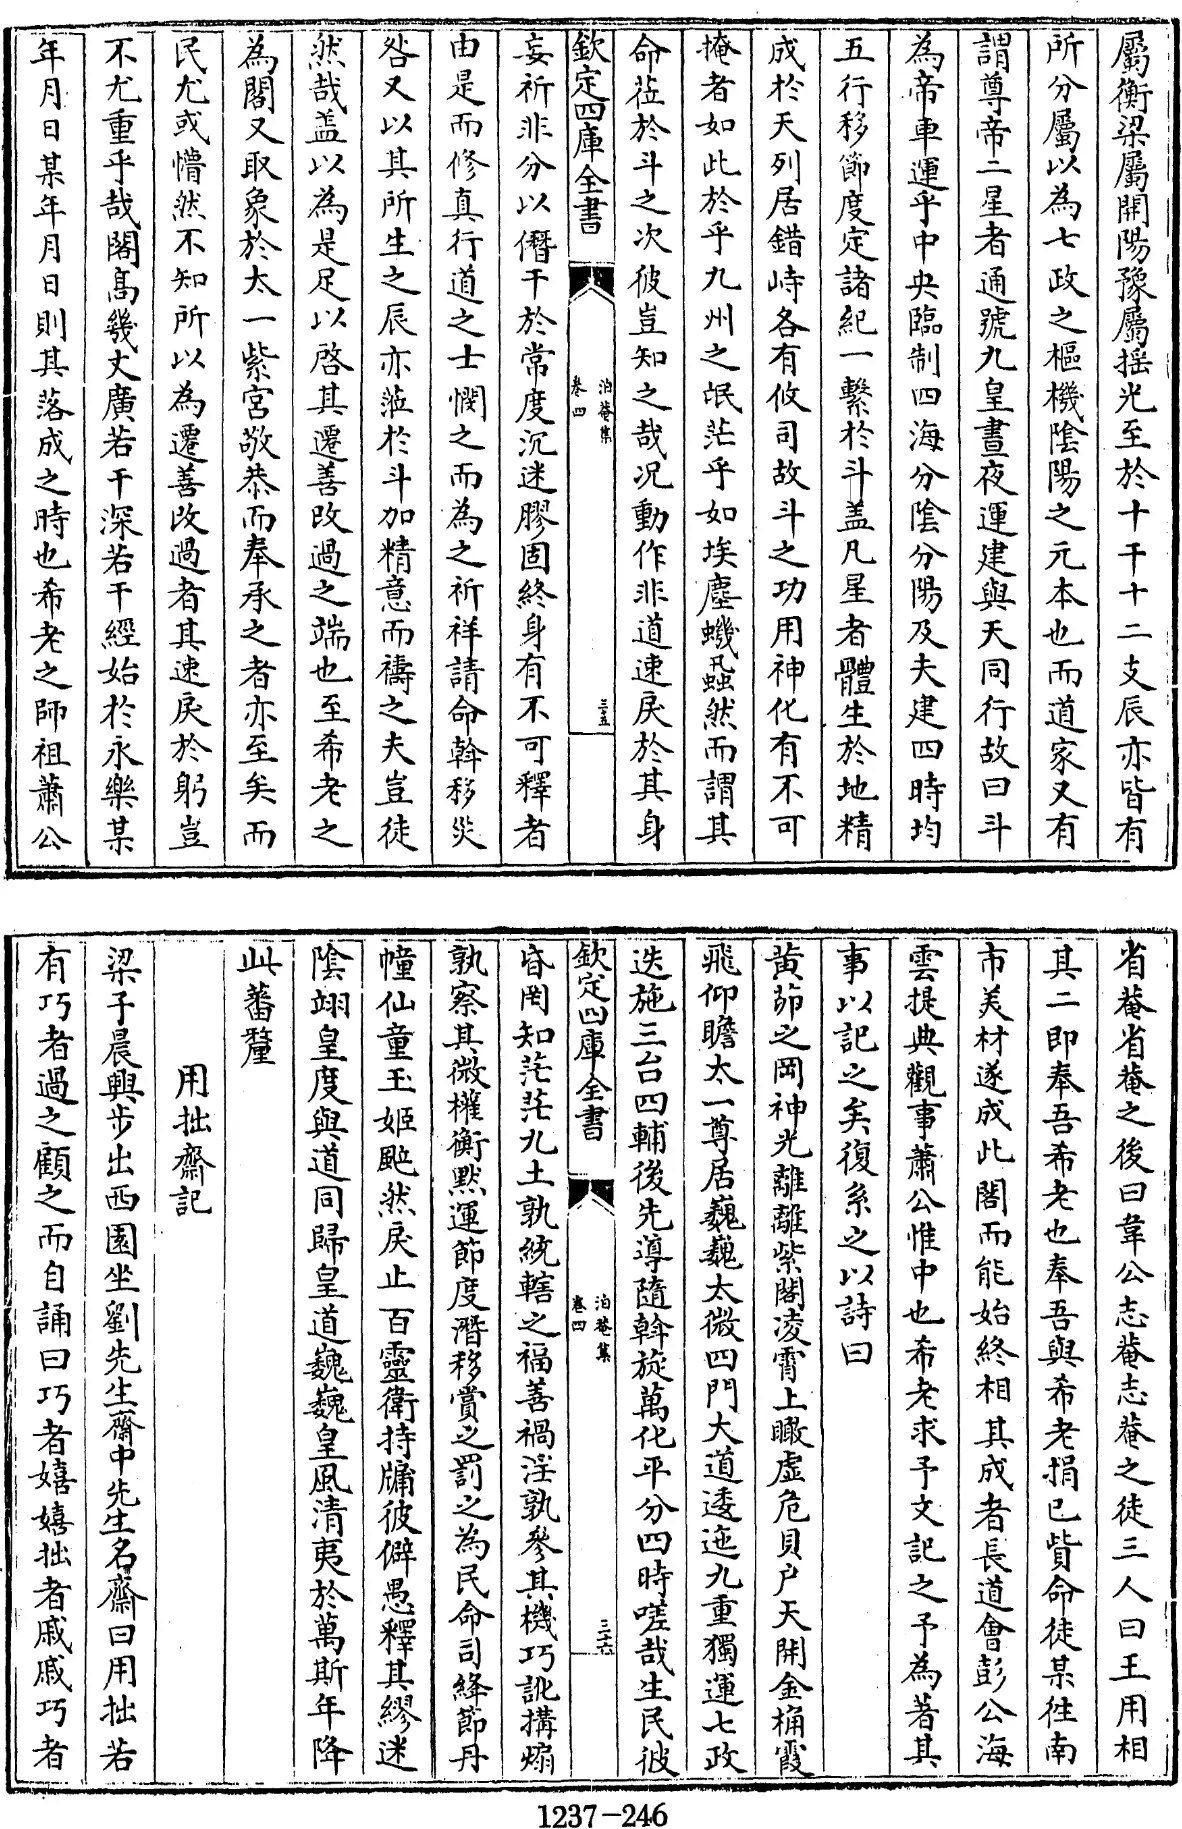 屬衡梁屬開陽豫屬揺光至於十干十二支辰亦皆有
所分屬以為七政之樞機隂陽之元本也而道家又有
謂尊帝二星者通號九皇晝夜運建與天同行故曰斗
為帝車運乎中央臨制四海分隂分陽及夫建四時均
五行移節度定諸紀一繫於斗盖凡星者體生於地精
成於天列居錯峙各有攸司故斗之功用神化有不可
掩者如此於乎九州之氓茫乎如埃塵蟣蝨然而謂其
命莅於斗之次彼豈知之哉况動作非道速戾於其身
欽定四庫全書
泊菴集
卷四
三十五
妄祈非分以僭干於常度沉迷膠固終身有不可釋者
由是而修真行道之士憫之而為之祈祥請命斡移災
咎又以其所生之辰亦莅於斗加精意而禱之夫豈徒
然哉盖以為是足以啓其遷善改過之端也至希老之
為閣又取象於太一紫宮敬恭而奉承之者亦至矣而
民尤或懵然不知所以為遷善改過者其速戾於躬豈
不尤重乎哉閣髙幾丈廣若干深若干經始於永樂某
年月日某年月日則其落成之時也希老之師祖蕭公
省菴省菴之後曰韋公志菴志菴之徒三人曰王用相
其二即奉吾希老也奉吾與希老捐已貲命徒某徃南
市美材遂成此閣而能始終相其成者長道㑹彭公海
雲提典觀事蕭公惟中也希老求予文記之予為著其
事以記之矣復系之以詩曰
黄茆之岡神光離離紫閣凌霄上瞰虚危貝户天開金桷霞
飛仰瞻太一尊居巍巍太微四門大道逶迤九重獨運七政
迭施三台四輔後先導隨斡旋萬化平分四時嗟哉生民彼
欽定四庫全書
泊菴集
卷四
三十六
昏罔知茫茫九土孰統轄之福善禍淫孰參其機巧訛搆煽
孰察其微權衡黙運節度潛移賞之罰之為民命司絳節丹
幢仙童玉姬颭然戾止百靈衛持牖彼僻愚釋其繆迷
隂翊皇度與道同歸皇道巍巍皇風清夷於萬斯年降
此蕃釐
用拙齋記
梁子晨興步出西園坐劉先生齋中先生名齋曰用拙若
有巧者過之顧之而自誦曰巧者嬉嬉拙者戚戚巧者
1237-246